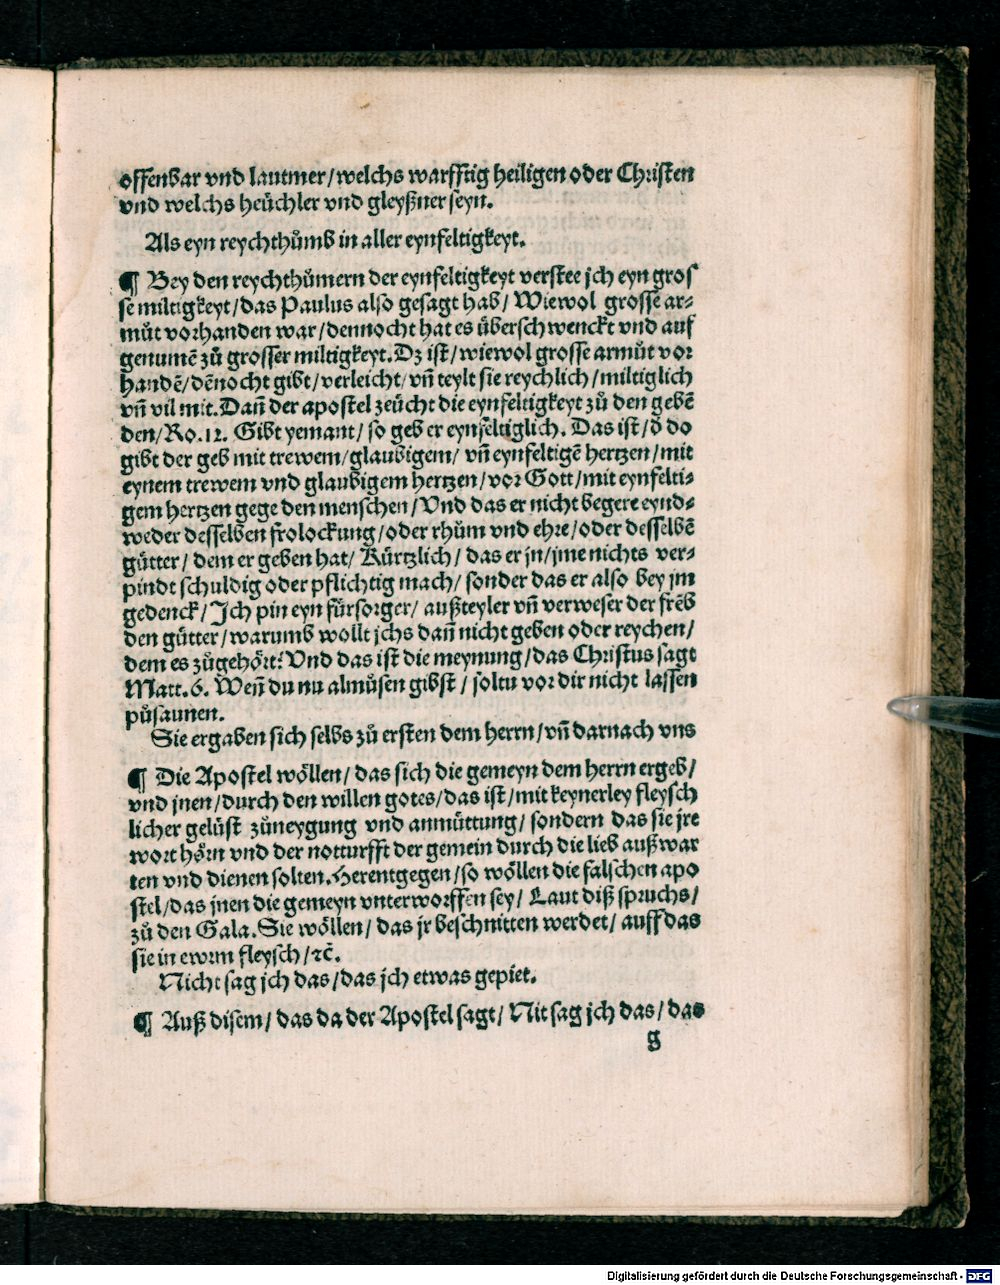 offenbar vnd lautmer/welchs warfftig heiligen oder Christen
vnd welchs heüchler vnd gleyßner seyn.
Als eyn reychthůmb in aller eynfeltigkeyt.
¶ Bey den reychthůmern der eynfeltigkeyt verstee jch eyn gros
se miltigkeyt/das Paulus also gesagt hab/Wiewol grosse ar⸗
můt vorhanden war/dennocht hat es überschwenckt vnd auf
genumē zů grosser miltigkeyt. Dz ist/wiewol grosse armůt vor
handē/dēnocht gibt/verleicht/vn̄ teylt sie reychlich/miltiglich
vn̄ vil mit. Dan̄ der apostel zeücht die eynfeltigkeyt zů den gebē
den/Ro.12. Gibt yemant/so geb er eynfeltiglich. Das ist/d̄ do
gibt der geb mit trewem/glaubigem/vn̄ eynfeltigē hertzen/mit
eynem trewem vnd glaubigem hertzen/vor Gott/mit eynfelti⸗
gem hertzen gege den menschen/Vnd das er nicht begere eynd⸗
weder desselben frolockung/oder rhům vnd ehre/oder desselbē
gütter/dem er geben hat/Kürtzlich/das er jn/jme nichts ver⸗
pindt schuldig oder pflichtig mach/sonder das er also bey jm
gedenck/Jch pin eyn fürsorger/außteyler vn̄ verweser der frēb
den gütter/warumb wollt jchs dan̄ nicht geben oder reychen/
dem es zůgehört? Vnd das ist die meynung/das Christus sagt
Matt.6. Wen̄ du nu almůsen gibst/soltu vor dir nicht lassen
půsaunen.
Sie ergaben sich selbs zů ersten dem herrn/vn̄ darnach vns
¶ Die Apostel wöllen/das sich die gemeyn dem herrn ergeb/
vnd jnen/durch den willen gotes/das ist/mit keynerley fleysch
licher gelüst zůneygung vnd anmüttung/sondern das sie jre
wort hörn vnd der notturfft der gemein durch die lieb auß war
ten vnd dienen solten. Herentgegen/so wöllen die falschen apo
stel/das jnen die gemeyn vnterworffen sey/Laut diß spruchs/
zů den Gala. Sie wöllen/das jr beschnitten werdet/auff das
sie in ewrm fleysch/ꝛc̄.
Nicht sag jch das/das jch etwas gepiet.
¶ Auß disem/das da der Apostel sagt/Nit sag jch das/das
g
Digitalisierung gefördert durch die Deutsche Forschungsgemeinschaft - DFG